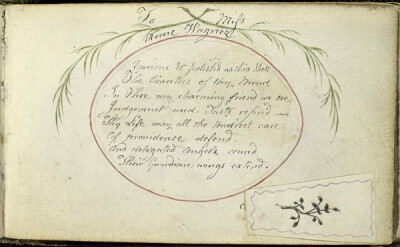 To Miss
Anne Wagner
Various & polish'd as this Shell
The beauties of thy Mind
In Thee my charming friend we see
Judgement and Taste refin'd —
Thy Life may all the tend'rest care
Of providence defend
And delegated Angels round
Their Guardian wings extend.